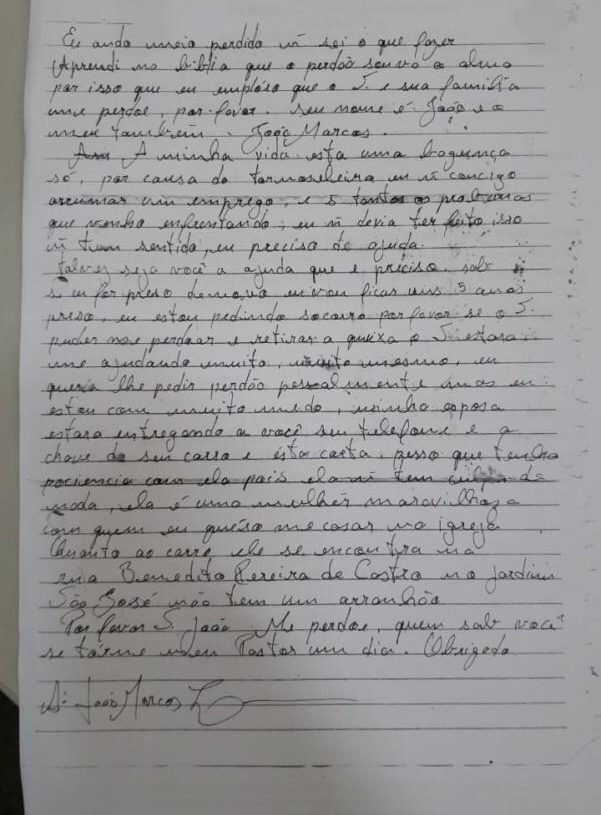 Eu ando meio perdido ñ sei o que fazer
Aprendi na biblia que o perdão souva a alma
por isso que eu emploro que o S. e sua familia
me perdoe, por favor. seu nome é João e o
meu também. João Marcos.
A minha vida esta uma bagunça
só, por causa da tornoseleira eu ñ concigo
arrumar um emprego, e s tantos os problemas
que venho enfrentando, eu ñ devia ter feito isso
ñ tem sentido, eu preciso de ajuda.
talvez seja você a ajuda que e preciso. sab
Se eu for preso denovo eu vou ficar uns 5 anos
preso, eu estou pedindo socorro por favor se o S.
puder me perdoar e retirar a queixa o S. estara
me ajudando muito, muito mesmo, eu
queria lhe pedir perdão pessoalmente mas eu
estou com muito medo, minha esposa
estara entregando a você seu telefone e a
chave do seu carro e esta carta. pesso que tenha
pociencia com ela pois ela ñ tem culpa de
nada, ela é uma mulher maravilhosa
com quem eu queiro me casar na igreja
Quanto ao carro, ele se encontra na
rua Benedito Pereira de Castro no jardim
São José não tem um arranhão
Por favor S. João Me perdoe, quem sab você
se tórne meu Pastor um dia. Obrigado.
A: João Marcos